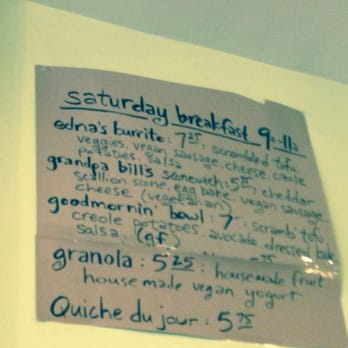 saturday breakfast 9a-11a
edna's burrito: 7.25: scrambled tofu,
veggies, vegan sausage, cheese, creole
potatoes, salsa
grandpa bill's stonewich: 5.75: cheddar
scallion scone, egg bake, vegan sausage,
cheese (vegetarian)
goodmornin' bowl: 7: scramb' tofu
creole potatoes, avocado, dressed kale
salsa. (gf)
granola: 5.25: housemade fruit
housemade vegan yogurt
Quiche du jour: 5.75